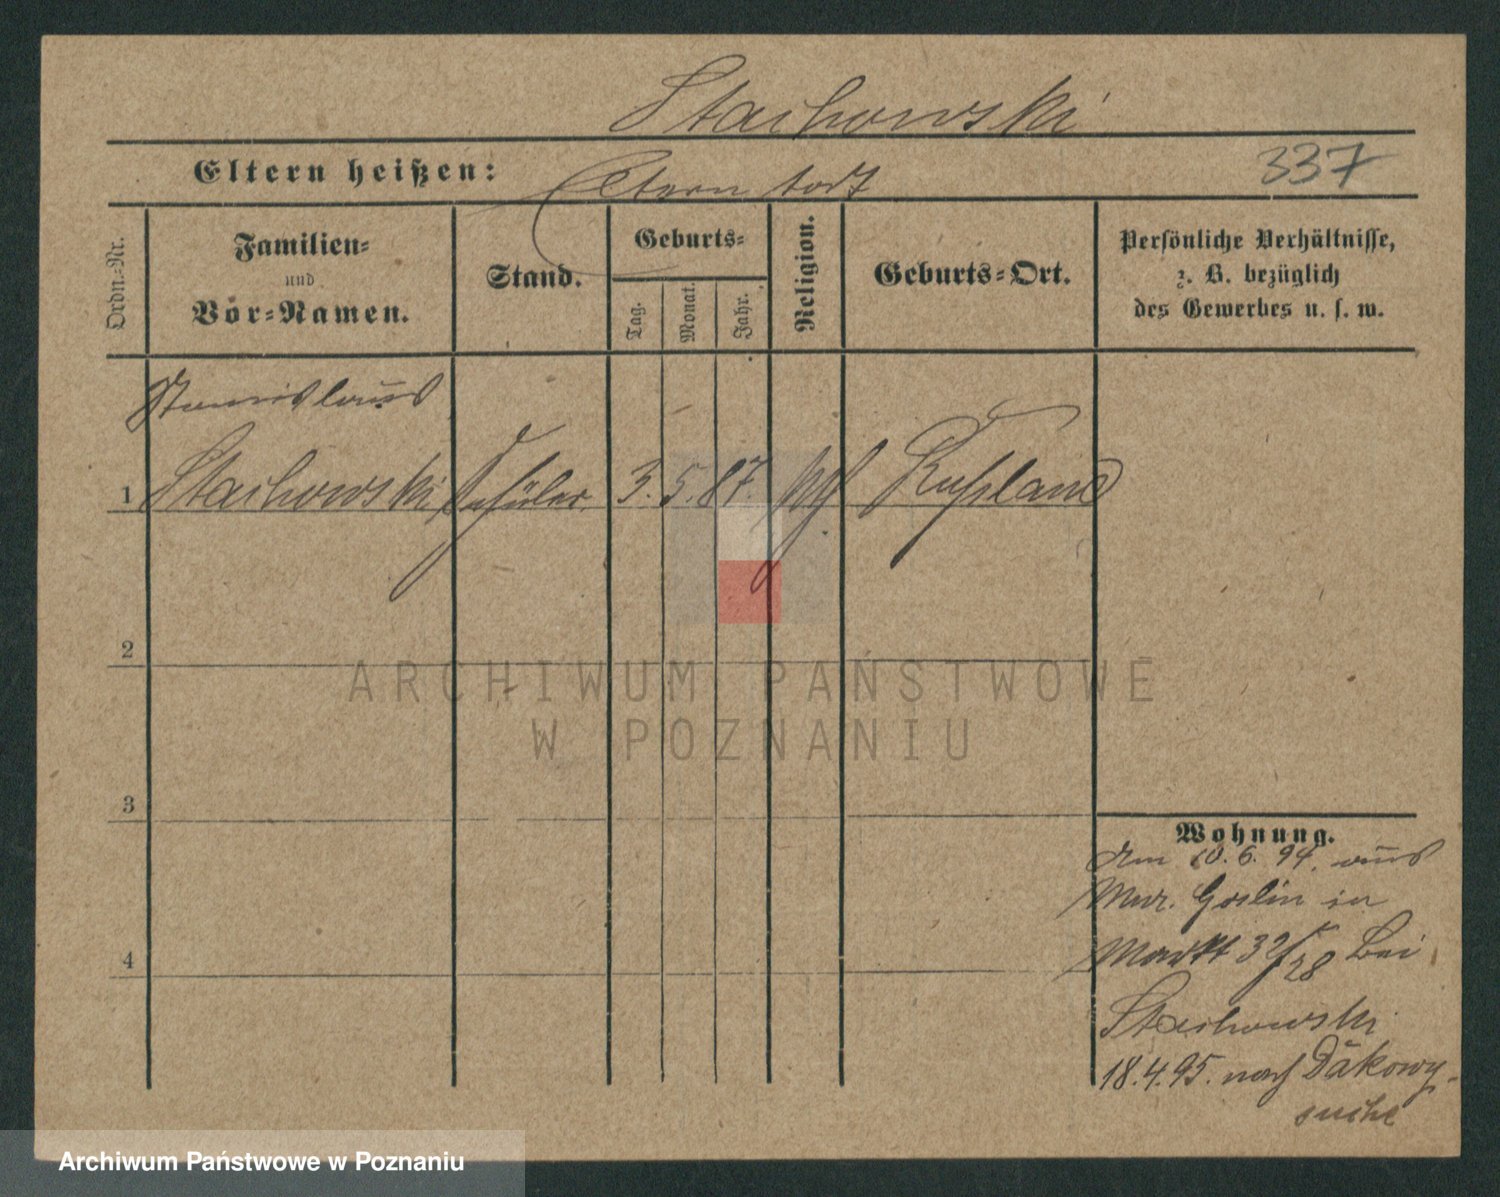 Stachowski
Eltern heißen: Eltern todt
337
Ordn.-Nr.
Familien-
und
Vor-Namen.
Stand.
Geburts-
Tag.
Monat.
Jahr.
Religion.
Geburts-Ort.
Persönliche Verhältnisse,
z. B. bezüglich
des Gewerbes u. s. w.
Stanislaus
1 Stachowski Schüler 3. 5. 87. Rußland
2
3
4
Wohnung.
Am 10. 6. 94. aus
Mur. Goslin in
Markt 32/28 bei
Stachowski
18.4.95. nach Dakowy-
suche
ARCHIWUM PAŃSTWOWE
W POZNANIU
Archiwum Państwowe w Poznaniu